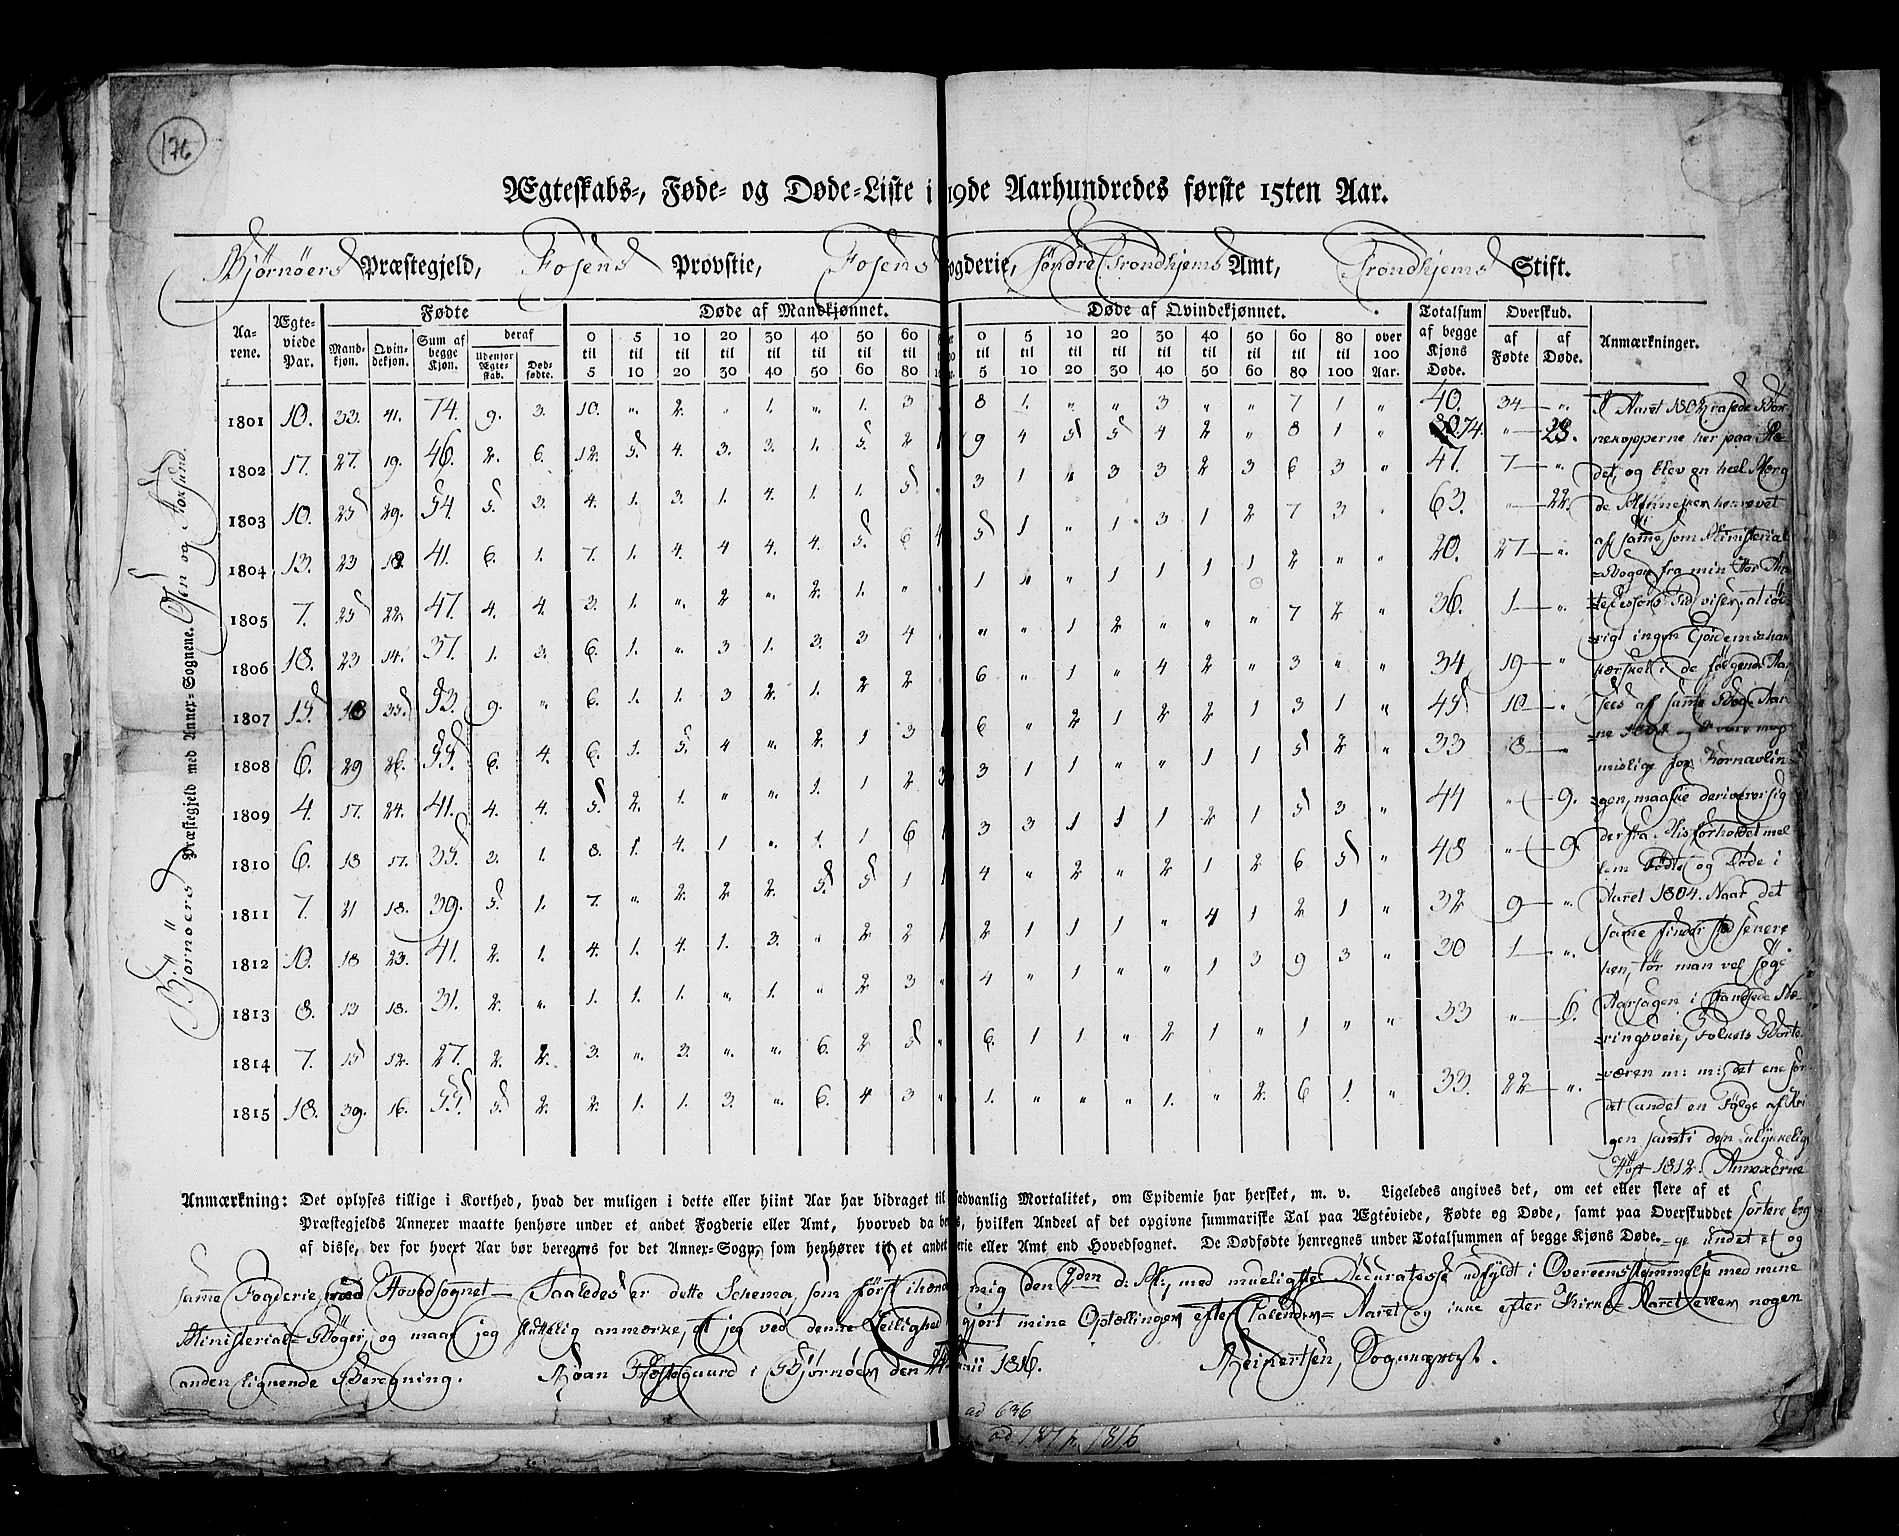 176
Ægteskabs-, Føde- og Døde-Liste i 19de Aarhundredes første 15ten Aar.
Bjørnøers Præstegjeld, Fosens Provstie, Fosens ogderie, Søndre Trondhjems Amt, Trondhjems Stift.
Bjørnøers Præstegjeld med Annex-Sognene. Osen og
Aarene. Ægteviede Par. Fødte Døde af Mandkjønnet. Døde af Qvindekjønnet. Totalsum af begge Kjøns Døde. Overskud. Anmærkninger.
Mandkjøn. Qvindekjøn. Sum af begge Kjøn. deraf Udenfor Ægteskab. Dødfødte. af Fødte af Døde.
0 til 5 5 til 10 10 til 20 20 til 30 30 til 40 40 til 50 50 til 60 60 til 80 0 til 5 5 til 10 10 til 20 20 til 30 30 til 40 40 til 50 50 til 60 60 til 80 80 til 100 over 100 Aar.
1801 10. 33. 41. 74. 9. 3. 10. " 2. " 1. " 1. 3 8 1. " " 3 " " 7 1 " 40. 34 "
1802 17. 27. 19. 46. 2. 6. 12. 5. 4. 3. 3. 1. 5. 2 1 9 4 5 5 4 2 " 8 1 " 74. " 28.
1803 10. 25 29. 54. 5. 3. 4. 1. 3. 1. 4. 1. 1. 5. " 3 1 " 3 3 2 3 6 3 " 47. 7 "
1804 13. 23 18. 41. 6. 1. 7. 1. 4. 4 4. 4. 5. 6 4 5 1 " 1 3 1 2 7 3 " 63. " 22.
1805 7. 25 22. 47. 4. 4. 3. 1. " 2 " 2. 1. " " 1 " " 1 1 1 1 2 " " 20. 27 "
1806 18. 23 14. 37. 1. 3. 6. 1. " 3 1. 3. 3 4 " " 1 2 " " " 7 2 " 36. 1 "
1807 15. 18 35. 53. 9. " 6. 1. 1. 3 2. 1. 2 2 6 " 1 " 4 2 " 3 " " 34 19 "
1808 6. 29 26. 55. 6. 4. 6. 1. 5. 4 " 2. 1 3 1 6 " 2 1 2 2 1 3 1 " 45 10 "
1809 4. 17. 24. 41. 4. 4. 5. 2. 1. " " 1. 1 2 3 3 1 1 " " 1 1 5 2 " 33 8 "
1810 6. 18 17. 35. 3. 1. 8. 1. 4. 1 " 1. 1 6 1 3 3 1 1 1 2 1 5 3 " 44 " 9.
1811 7. 21 18. 39. 5. 1. 7. " 2. 2 2. 5. 5 1 1 4 " 2 " 2 1 2 6 5 " 48 " 9.
1812 10. 18 23. 41. 2. 1. 4. 1. 4. 1. 3. " 2 2 1 2 1 1 1 " 4 1 2 1 " 32 9 "
1813 8. 13 18. 31. 2. " 1. 1. 1. " 1. " 2 3 " 4 " 1 " " 1 3 9 3 " 30 1 "
1814 7. 15 12. 27. 2. 2. 3. " 3. " " 6. 2 5 " 6. 1 1 " 2 1 " 1 " " 33 " 6.
1815 18. 39. 16. 55. 5. 2. 2. 1. 1. 3. " 6. 4 3 " 1. " " " 1. " 2. 6 1. " 33. 22 "
I Aaret 1802 rasede Bør-
nekopperne her paa Ste-
det, og blev en heel Mæng
de Mennesker henrevet
af samme, som Ministerial
-Bogen fra min For An
-tecessors Tid viser, at iøv-
-rigt ingen Epidemie har
hersket i de følgende Aar
sees af samme Bog. Aar-
ne 1804 og
mislige for Kornavlin-
-gen, maaskee deriver sig
derfra Misforholdet mel
lem Fødte og Døde i
Aaret 1804. Naar det
samme finder sted senere
hen, tør man vel søge
Aarsagen i standsede Næ-
-ringsveie, Folkets Borte-
-væren m: m: det ene saa
det andet en Følge af Kri
gen samt i den ulykkelig
Høst 1812. Annexerne
sortere beg
-ge undet et og
Anmærkning: Det oplyses tillige i Korthed, hvad der muligen i dette eller hiint Aar har bidraget til sadvanlig Mortalitet, om Epidemie har hersket, m. v. Ligeledes angives det, om eet eller flere af et
Præstegjelds Annexer maatte henhøre under et andet Fogderie eller Amt, hvorved da be s, hvilken Andeel af det opgivne summariske Tal paa Ægteviede, Fødte og Døde, samt paa Overskuddet
af disse, der for hvert Aar bør beregnes for det Annex-Sogn, som henhører til et andt erie eller Amt end Hovedsognet. De Dødfødte henregnes under Totalsummen af begge Kjøns Døde.
samme Fogderie, med Hovedsognet — Saaledes er dette Schema, som først ihænde mig den 9den d: M:, med mueligste Accuratesse udfyldt i Overeensstemmelse med mine
Ministerial-Bøger, og maa jeg sluttelig anmærke, at jeg ved denne Leilighed gjort mine Optællinger efter Calender-Aaret og ikke efter Kirke-Aaret eller nogen
anden lignende Beregning. Roan Præstegaard i Bjørnøer den Maii 1816. Sognepræst.
ad 636
ad 1816